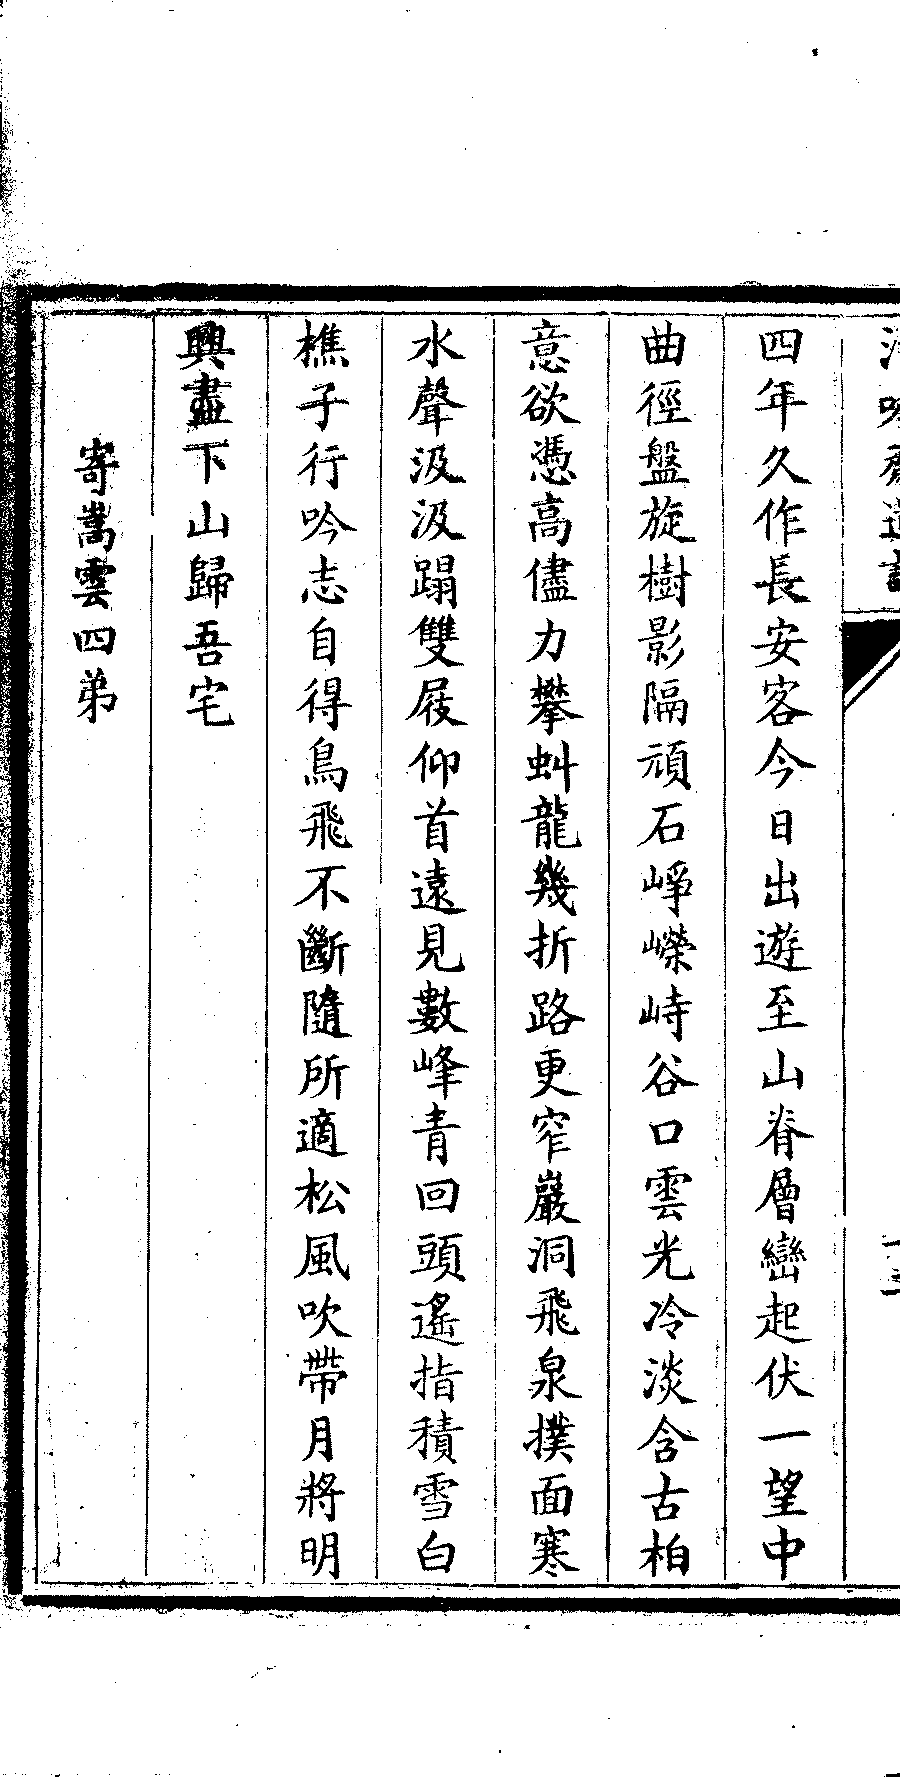 四年久作長安客今日出遊至山脊層巒起伏一望中
曲徑盤旋樹影隔頑石崢嶸峙谷口雲光冷淡含古柏
意欲憑高儘力攀虯龍幾折路更窄巖洞飛泉撲面寒
水聲汲汲蹋雙屐仰首遠見數峰青回頭遙指積雪白
樵子行吟志自得鳥飛不斷隨所適松風吹帶月將明
興盡下山歸吾宅
寄嵩雲四弟